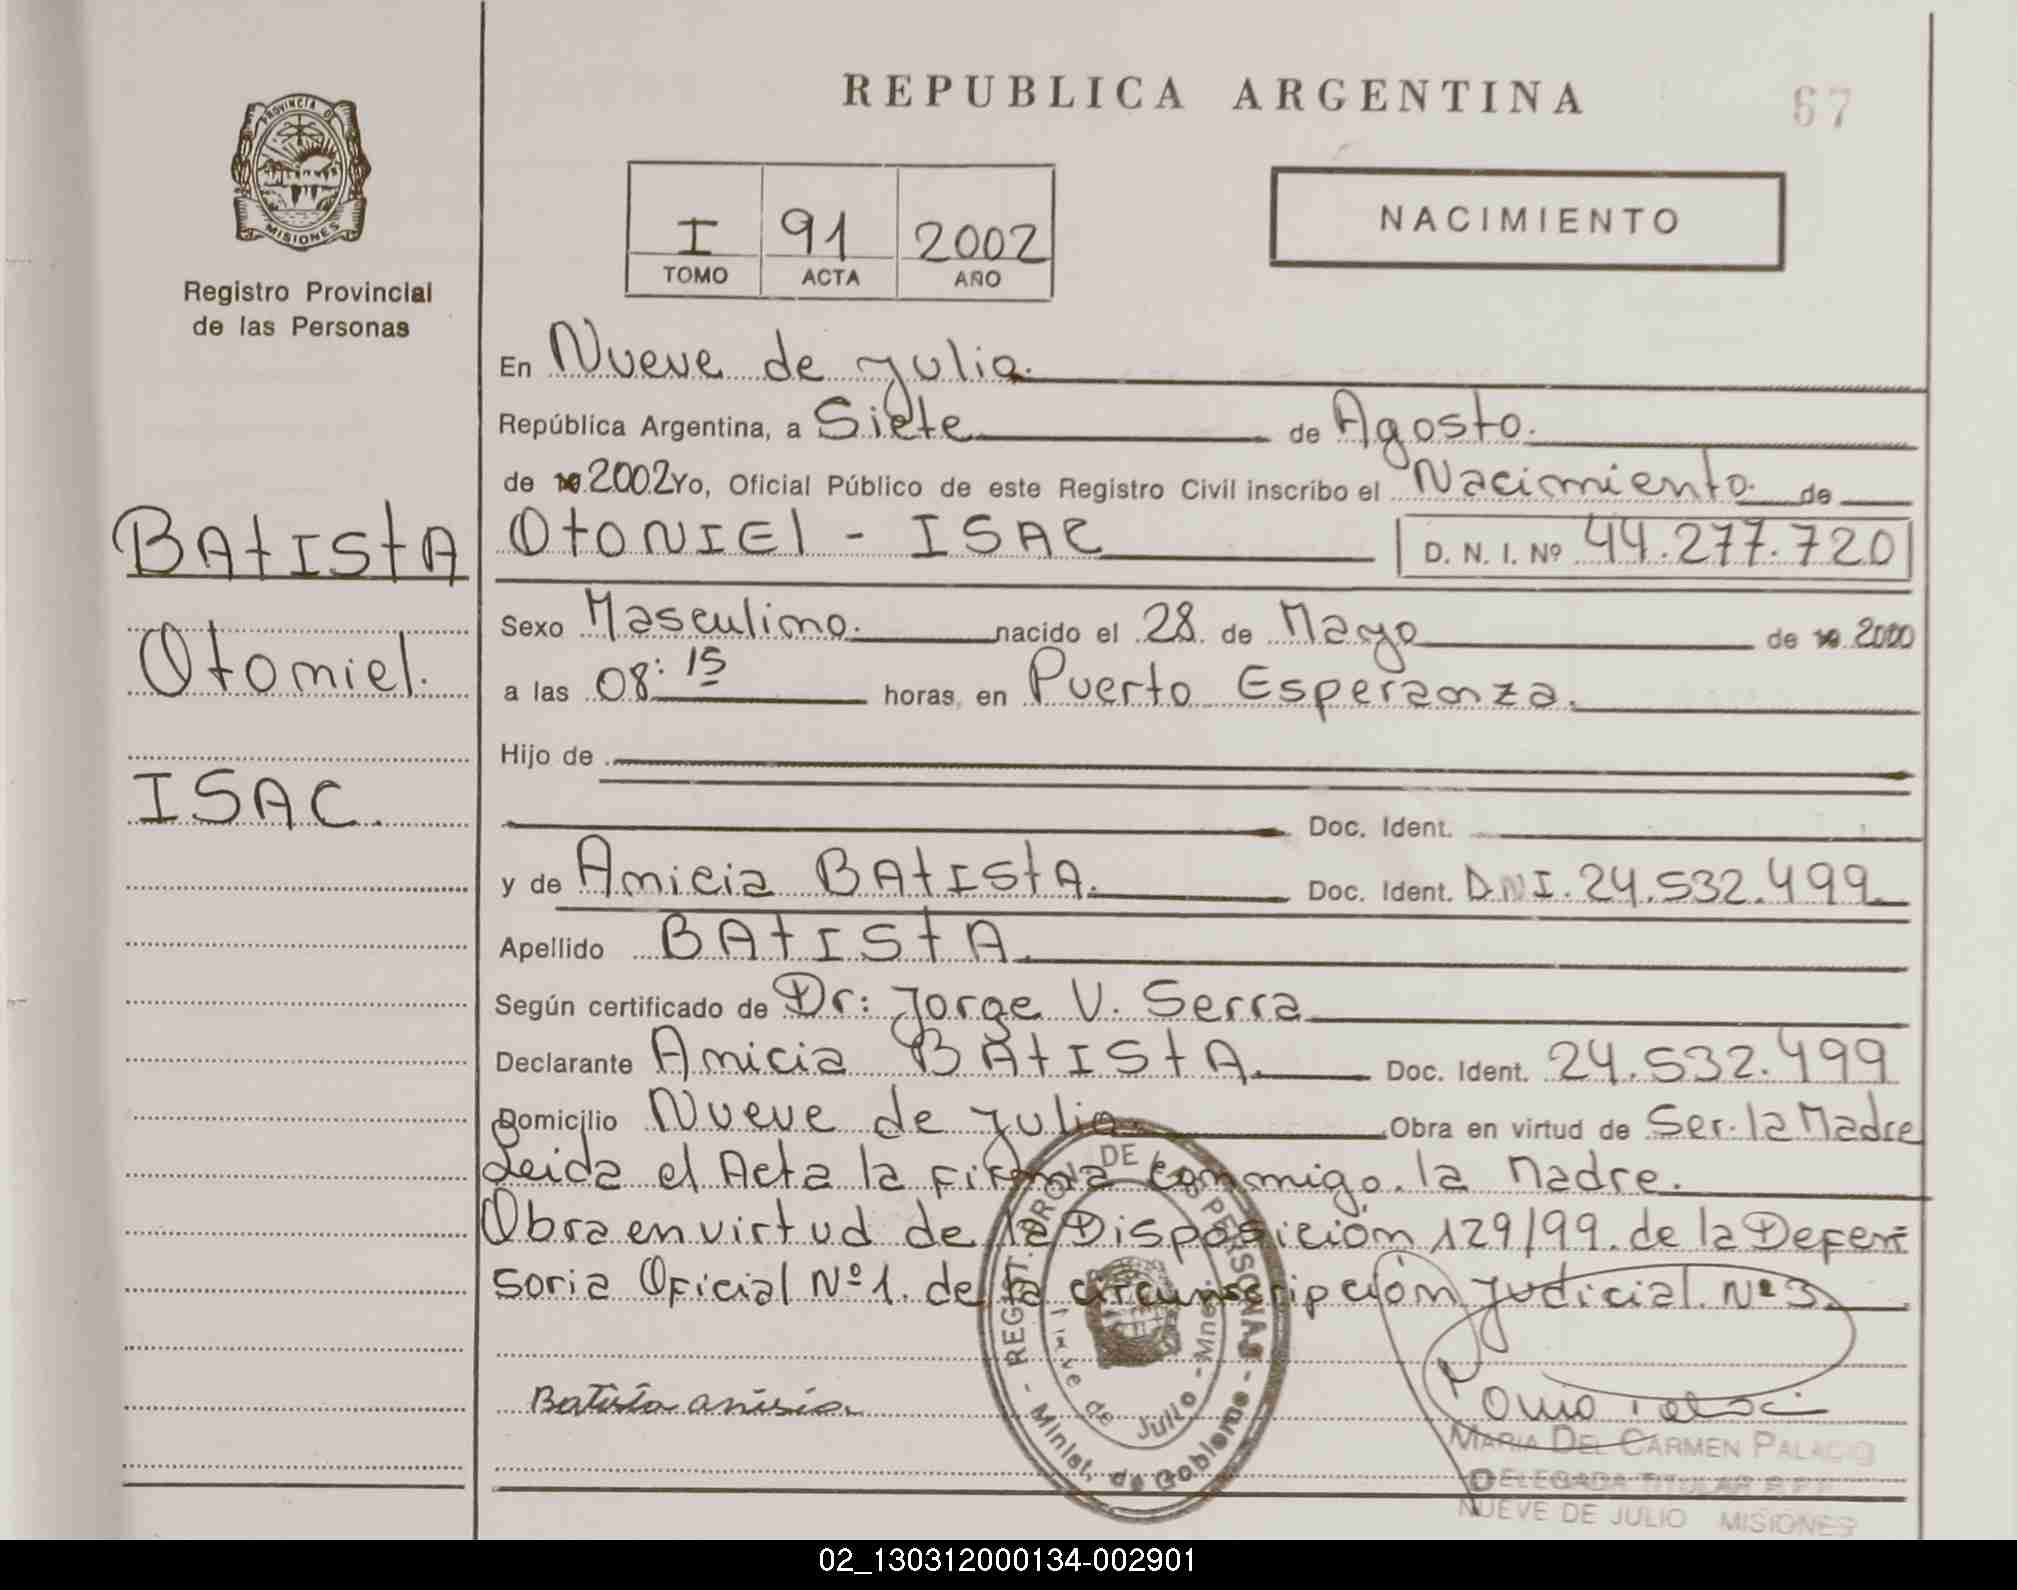 REPUBLICA ARGENTINA
67
PROVINCIA DE
MISIONES
Registro Provincial
de las Personas
I 91 2002
TOMO ACTA AÑO
NACIMIENTO
En Nueve de Julio.
República Argentina, a Siete de Agosto.
de 2002 Yo, Oficial Público de este Registro Civil inscribo el Nacimiento de
BAtIStA
Otoniel.
ISAC.
OtONIEl - ISAC D. N. I. Nº 44.277.720
Sexo Masculino. nacido el 28 de Mayo de 2000
a las 08:15 horas, en Puerto Esperanza.
Hijo de
Doc. Ident.
y de Anicia BAtIStA. Doc. Ident. DNI. 24.532.499
Apellido BAtIStA.
Según certificado de Dr: Jorge V. Serra
Declarante Anicia BAtIStA. Doc. Ident. 24.532.499
Domicilio Nueve de Julio. Obra en virtud de Ser. la Madre
Leida el Acta la Firma conmigo. la Madre.
Obra en virtud de la Disposición 129/99. de la Defen
soria Oficial Nº 1. de la circunscripción Judicial. Nº 3.
Batista anisia.
REGIST. PROV. DE LAS PERSONAS
- Minist. de Gobierno -
Nueve de Julio - Mnes.
MARIA DEL CARMEN PALACIO
DELEGADA TITULAR
NUEVE DE JULIO MISIONES
02_130312000134-002901